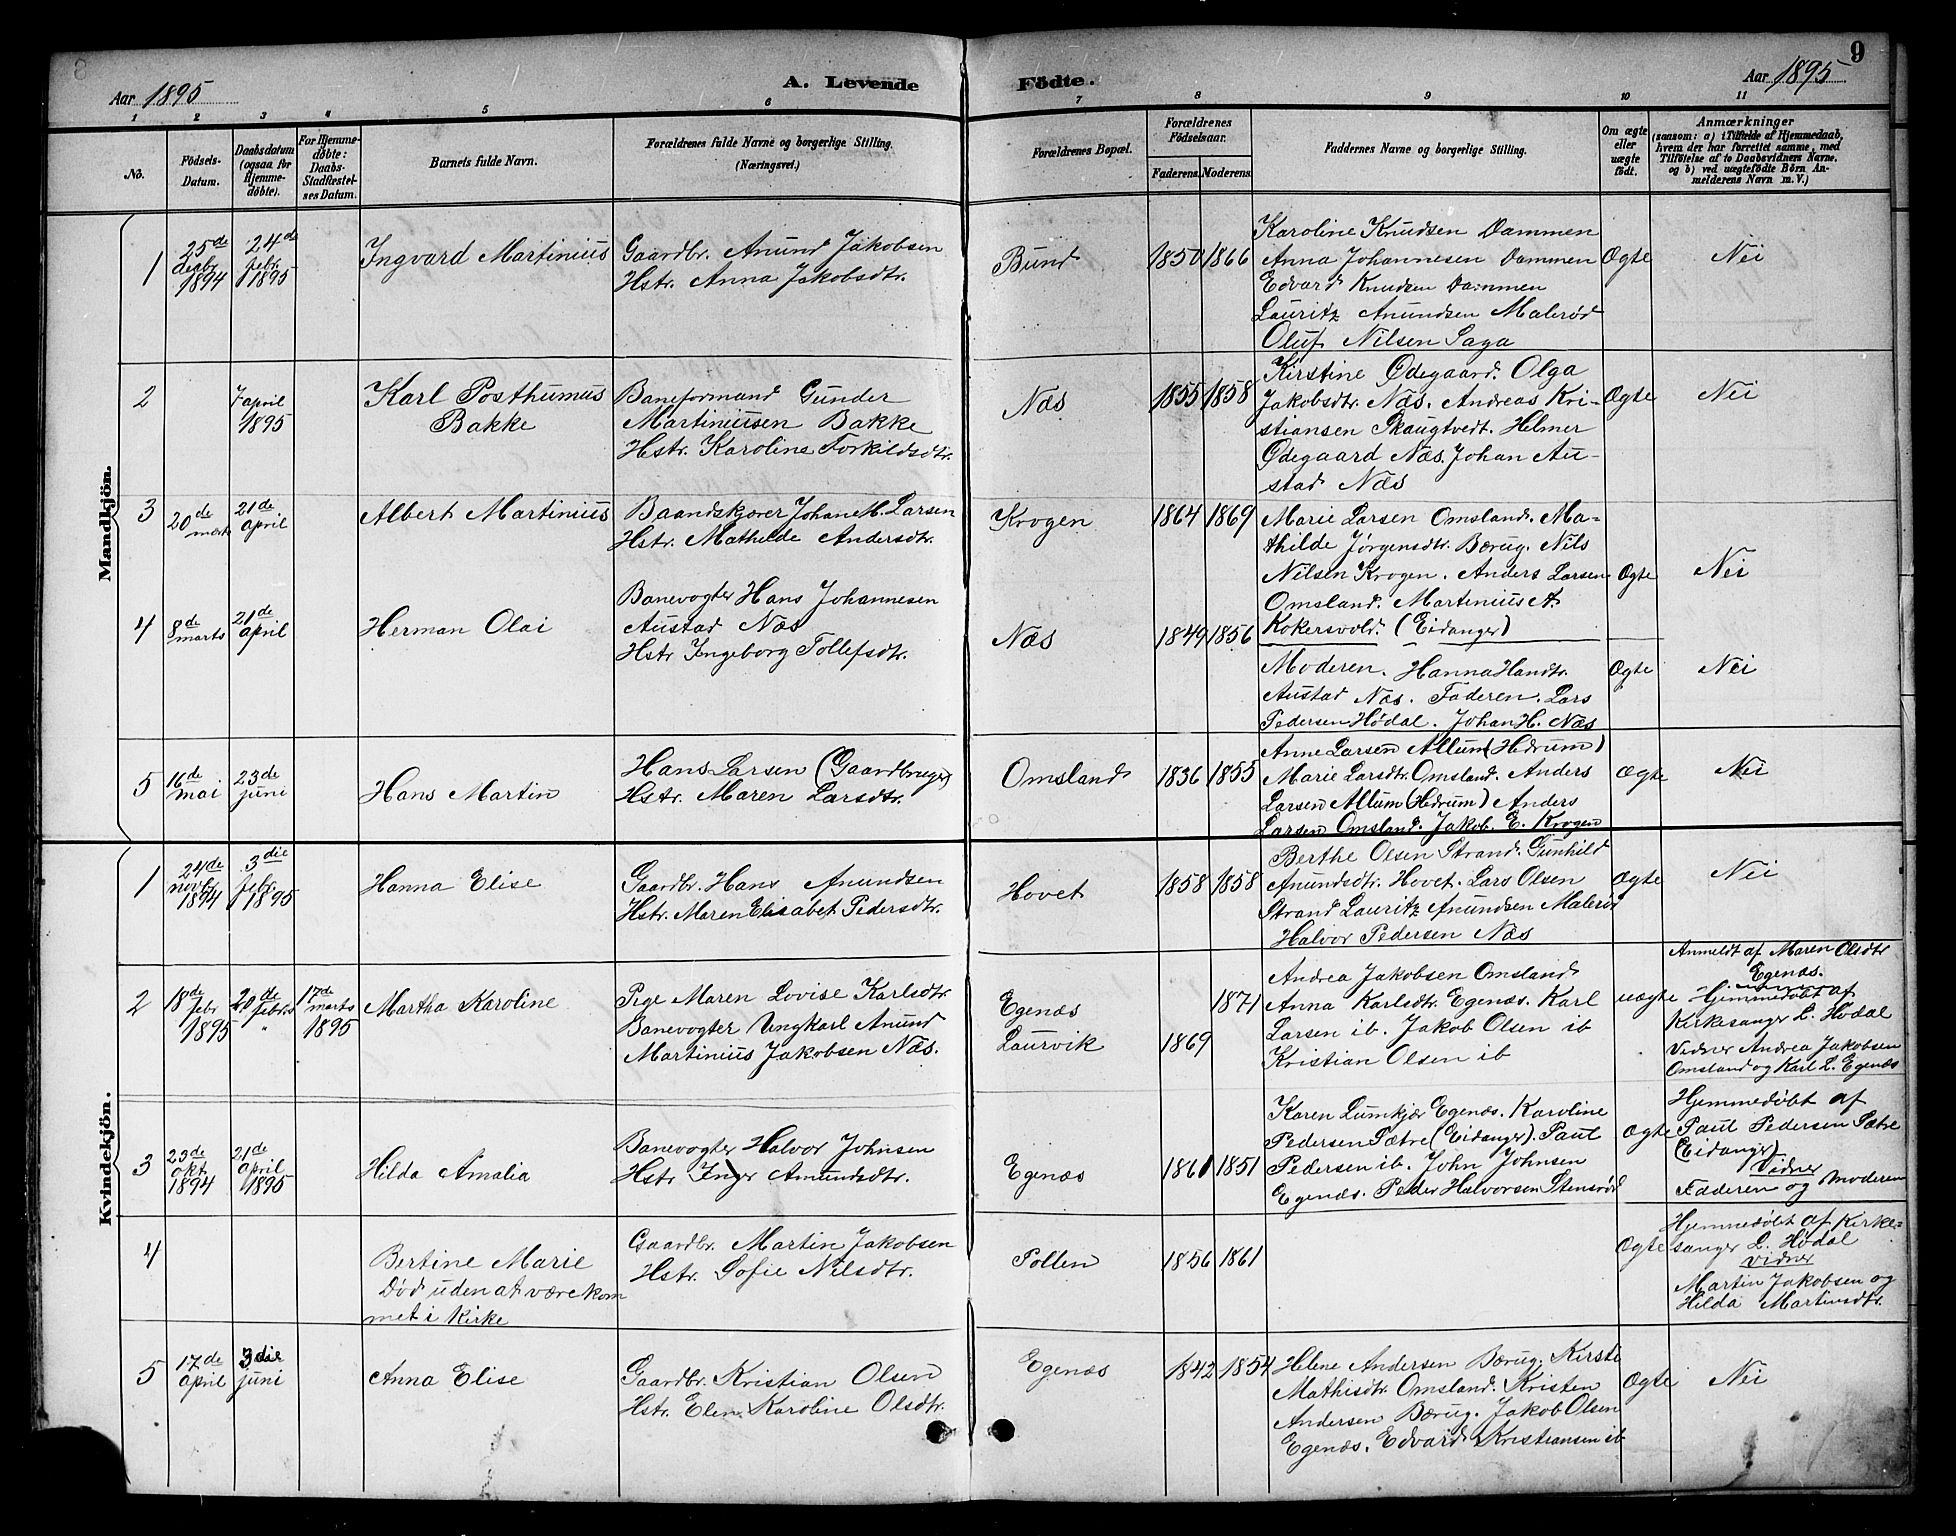 8
9
Aar 1895
A. Levende Födte.
Aar 1895
1 2 3 4 5 6 7 8 9 10 11
No.
Födsels-
Datum.
Daabsdatum
(ogsaa for
Hjemme-
döbte).
For Hjemme-
döbte:
Daabs-
Stadfæstel-
ses Datum.
Barnets fulde Navn.
Forældrenes fulde Navne og borgerlige Stilling.
(Næringsvei.)
Forældrenes Bopæl.
Forældrenes
Födselsaar.
Faderens. Moderens.
Faddernes Navne og borgerlige Stilling.
Om ægte
eller
uægte
födt.
Anmærkninger
(saasom: a) i Tilfælde af Hjemmedaab,
hvem der har forrettet samme, med
Tilföielse af to Daabsvidners Navne,
og b) ved uægtefödte Börn An-
melderens Navn m. V.)
Mandkjön.
1
25de
decbr
1894
24de
febr.
1895
Ingvard Martinius
Gaardbr. Anund Jakobsen
Hstr. Anna Jakobsdtr.
Bund
1850 1866
Karoline Knudsen Dammen
Anna Johannesen Dammen
Edvard Knudsen Dammen
Lauritz Anundsen Malerød
Oluf Nilsen Saga
Ægte
Nei
2
7 april
1895
Karl Posthumus
Bakke
Baneformand Gunder
Martiniusen Bakke
Hstr. Karoline Torkildsdtr.
Næs
1855 1858
Kirstine Ødegaard. Olga
Jakobsdtr. Næs. Andreas Kri-
stiansen Skaugtvedt. Helmer
Ødegaard Næs. Johan Au-
stad Næs
Ægte
Nei
3
20de
marts
21de
april
Albert Martinius
Baandskjærer Johan M. Larsen
Hstr. Mathilde Andersdtr.
Krogen
1864 1869
Marie Larsen Omsland. Ma-
thilde Jørgensdtr. Bærug. Nils
Nilsen Krogen. Anders Larsen
Omsland. Martinius A.
Kokersvold. (Eidanger)
Ægte
Nei
4
8de
marts
21de
april
Herman Olai
Banevogter Hans Johannesen
Austad Næs
Hstr Ingeborg Tollefsdtr.
Næs
1849 1856
Moderen. Hanna Handtr.
Austad Næs. Faderen. Lars
Pedersen Hødal. Johan H. Næs
Ægte
Nei
5
16de
mai
23de
juni
Hans Martin
Hans Larsen (Gaardbruger)
Hstr. Maren Larsdtr.
Omsland
1836 1855
Anne Larsen Allum (Hedrum)
Marie Larsdtr. Omsland. Anders
Larsen Allum (Hedrum) Anders
Larsen Omsland. Jakob. E. Krogen
Ægte
Nei
Kvindekjön.
1
24de
novbr
1894
3die
febr.
1895
Hanna Elise
Gaardbr. Hans Anundsen
Hstr. Maren Elisabet Pedersdtr.
Hovet
1858 1858
Berthe Olsen Strand. Gunhild
Anundsdtr. Hovet. Lars Olsen
Strand Lauritz Anundsen Malerød
Halvor Pedersen Næs
Ægte
Nei
2
18de
febr
1895
20de
febr.
"
17de
marts
1895
Martha Karoline
Pige Maren Lovise Karlsdtr.
Banevogter Ungkarl Anund
Martinius Jakobsen Næs.
Egenæs
Laurvik
1869
1871
Andrea Jakobsen Omsland
Anna Karlsdtr. Egenæs. Karl
Larsen ib. Jakob Olsen ib
Kristian Olsen ib
uægte
Anmeldt af Maren Olsdtr
Egenæs.
Hjemmedøbt af
Kirkesanger L. Hødal
Vidner Andrea Jakobsen
Omsland og Karl L. Egenæs
3
23de
okt.
1894
21de
april
1895
Hilda Amalia
Banevogter Halvor Johnsen
Hstr Inger Amundsdtr.
Egenæs
1861 1851
Karen Lumkjær Egenæs. Karoline
Pedersen Sætre (Eidanger). Paul
Pedersen ib. John Johnsen
Egenæs. Peder Halvorsen Stensrød
Ægte
Hjemmedøbt af
Paul Pedersen Sætre
(Eidanger)
Vidner
Faderen og Moderen
4
Bertine Marie
Død uden at være kom
met i Kirke
Gaardbr. Martin Jakobsen
Hstr. Sofie Nilsdtr.
Pollen
1856 1861
Ægte
Hjemmedøbt af Kirke-
sanger L. Hødal
Vidner
Martin Jakobsen og
Hilda Martinsdtr.
5
17de
april
3die
juni
Anna Elise
Gaardbr. Kristian Olsen
Hstr. Elen Karoline Olsdtr.
Egenæs
1842 1854
Helene Andersen Bærug. Kirsti
Mathisdtr. Omsland. Kristen
Andersen Bærug. Jakob Olsen
Egenæs. Edvard Kristiansen ib
Ægte
Nei